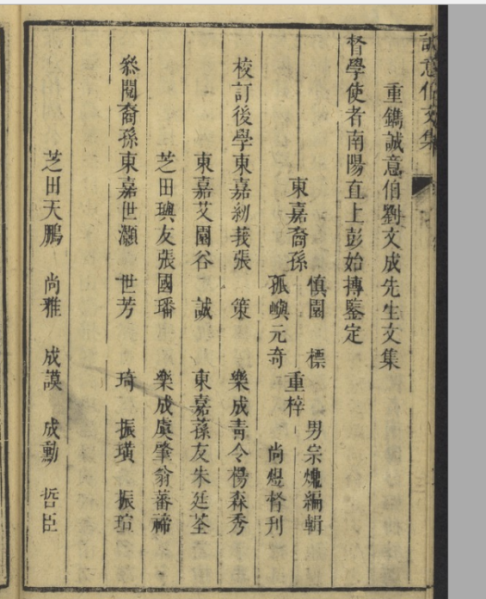 誠意伯文集
重鐫誠意伯劉文成先生文集
督學使者南陽直上彭始摶鑒定
東嘉裔孫
慎園 標
孤嶼元奇
重梓
男宗爌編輯
尚燝督刋
校訂後學東嘉紉莪張 策 樂成青令楊森秀
東嘉艾園谷 誠 東嘉蓀友朱廷荃
芝田璵友張國璠 樂成虞肇翁蕃禘
叅閱裔孫東嘉世灝 世芳 琦 振璜 振瑄
芝田天鵬 尚雅 成謨 成勳 哲臣